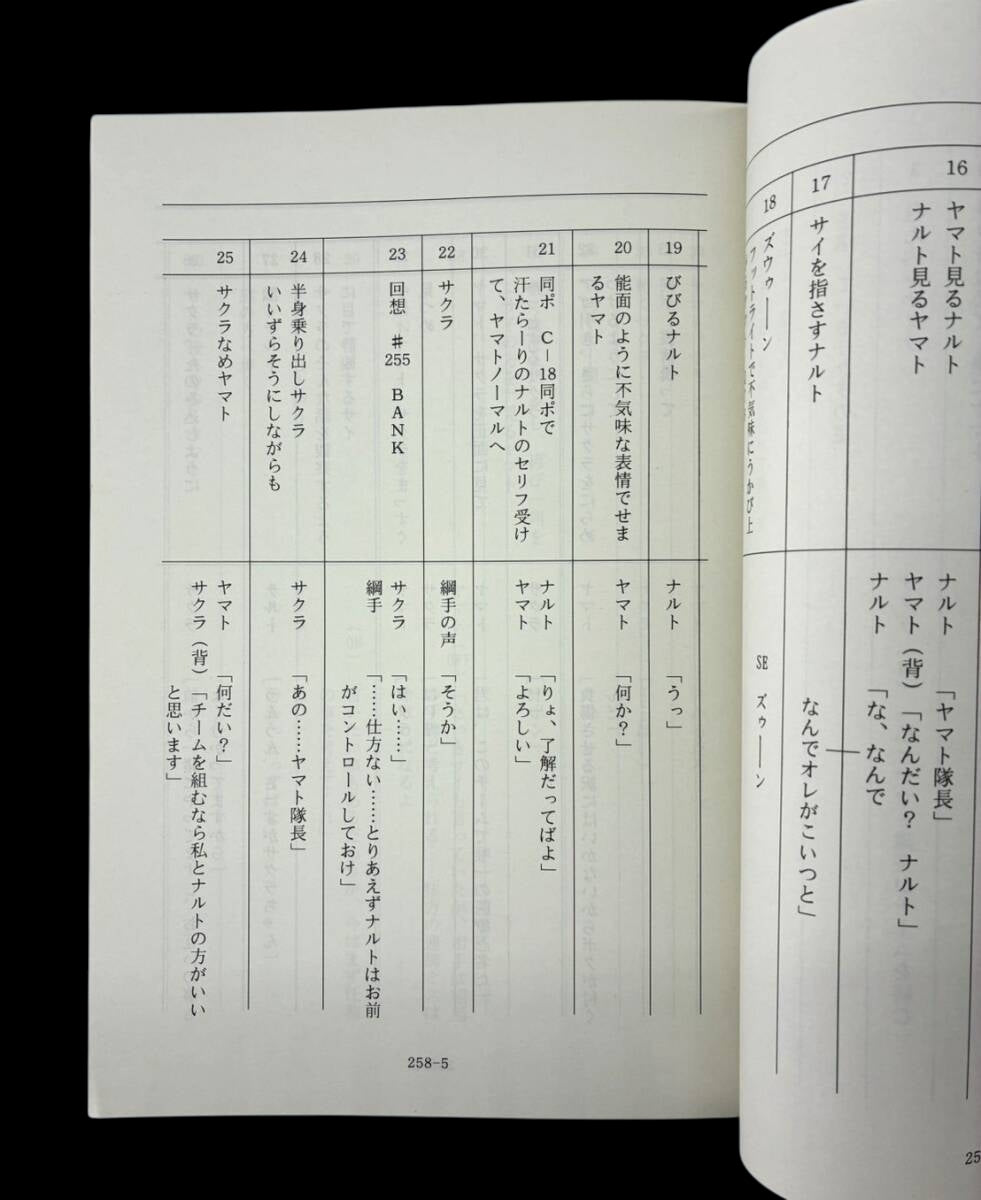 16
ヤマト見るナルト
ナルト見るヤマト
ナルト 「ヤマト隊長」
ヤマト（背）「なんだい？ ナルト」
ナルト 「な、なんで
17
サイを指さすナルト
なんでオレがこいつと」
18
ズウゥ――ン
フットライトで不気味にうかび上
SE ズゥ――ン
19
びびるナルト
ナルト 「うっ」
20
能面のように不気味な表情でせま
るヤマト
ヤマト 「何か？」
21
同ポ C－18同ポで
汗たらーりのナルトのセリフ受け
て、ヤマトノーマルへ
ナルト 「りょ、了解だってばよ」
ヤマト 「よろしい」
22
サクラ
綱手の声 「そうか」
23
回想 ＃255 BANK
サクラ 「はい……」
綱手 「……仕方ない……とりあえずナルトはお前
がコントロールしておけ」
24
半身乗り出しサクラ
いいずらそうにしながらも
サクラ 「あの……ヤマト隊長」
25
サクラなめヤマト
ヤマト 「何だい？」
サクラ（背）「チームを組むなら私とナルトの方がいい
と思います」
258-5
25